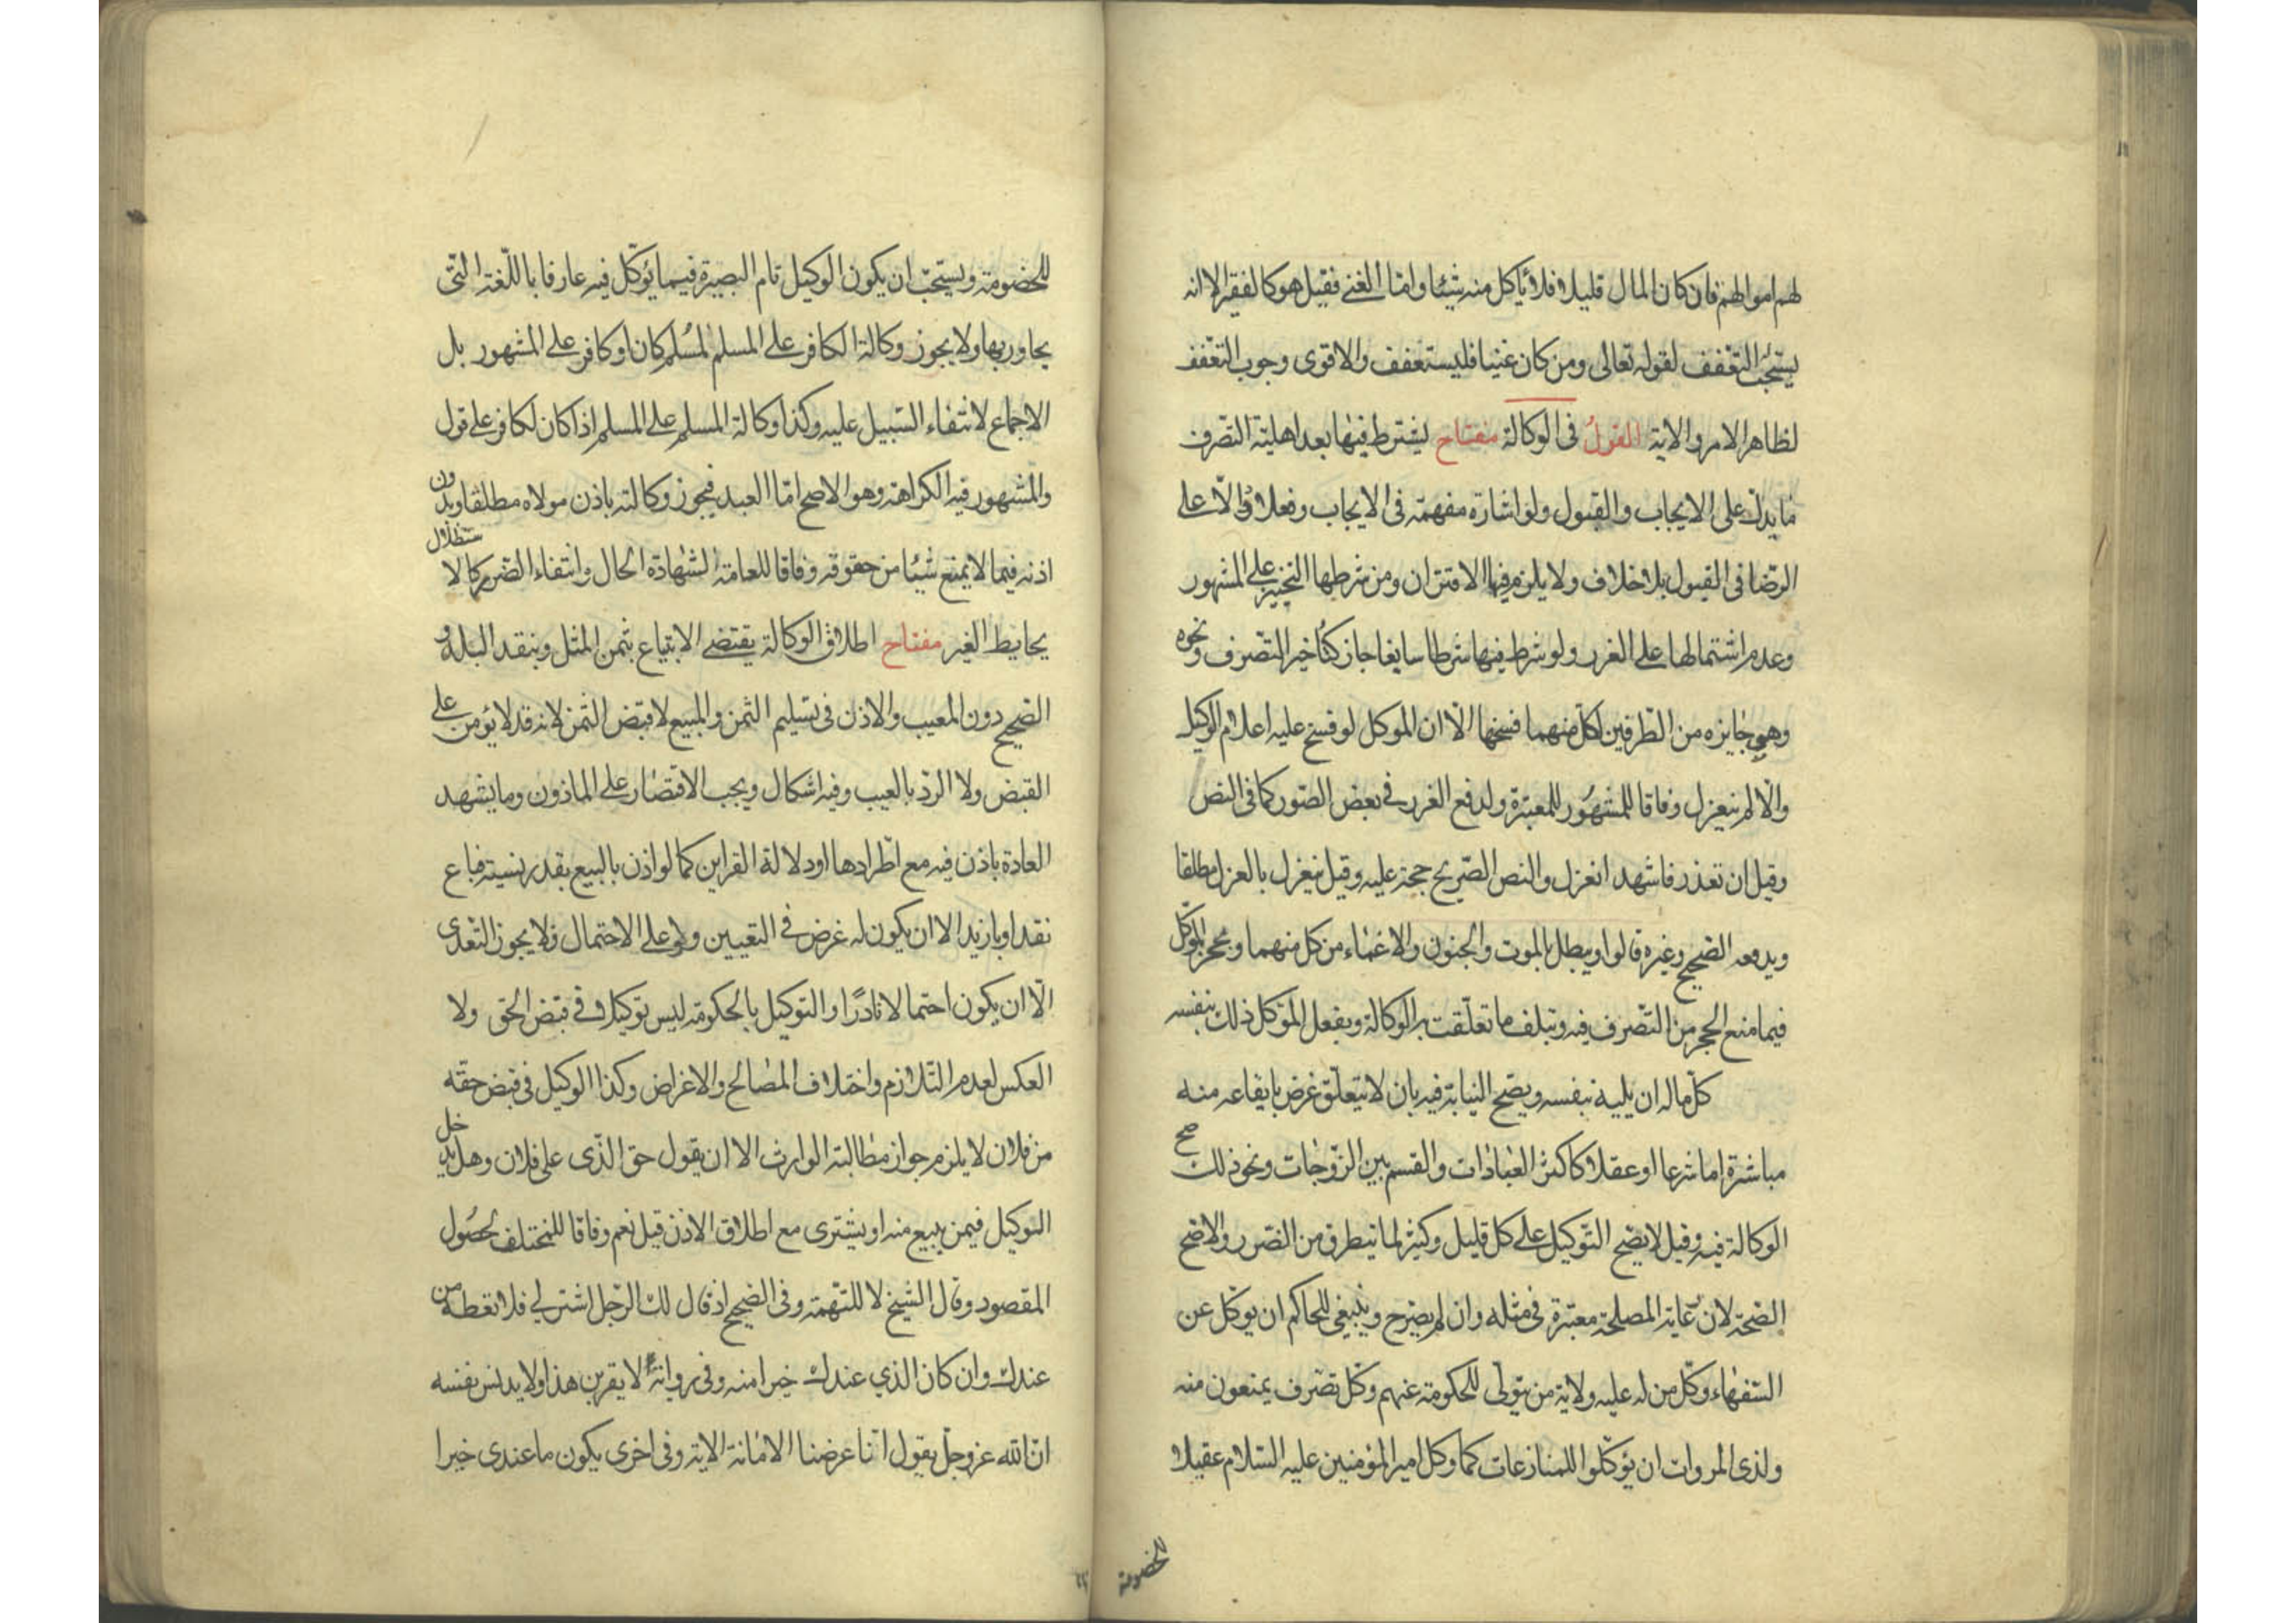 لهم اموالهم فان كان المال قليلا فلا ياكل منه شيئا واما الغني فقيل هو كالفقير الا انه
يستحب التعفف لقوله تعالى ومن كان غنيا فليستعفف والاقوى وجوب التعفف
لظاهر الامر والاية القول فى الوكالة مفتاح يشترط فيها بعد اهلية التصرف
ما يدل على الايجاب والقبول ولو اشارة مفهمة فى الايجاب وفعلا دالا على
الرضا فى القبول بلا خلاف ولا يلزم فيها الاقتران ومن شرطها التنجيز على المشهور
وعدم اشتمالها على الغرر ولو شرط فيها شرطا سايغا جاز كتاخير التصرف ونحوه
وهى جايزه من الطرفين لكل منهما فسخها الا ان الموكل لو فسخ عليه اعلام الوكيل
والا لم ينعزل وفاقا للمشهور للمعتبرة ولدفع الغرر فى بعض الصور كما فى النص
وقيل ان تعذر فاشهد انعزل والنص الصريح حجة عليه وقيل ينعزل بالعزل مطلقا
ويدفعه الصحيح وغيره قالوا ويبطل بالموت والجنون والاغماء من كل منهما وبحجر الموكل
فيما منع الحجر من التصرف فيه وبتلف ما تعلقت به الوكالة وبفعل الموكل ذلك بنفسه
كل ماله ان يليه بنفسه ويصح النيابة فيه بان لا يتعلق غرض بايقاعه منه
مباشرة اما شرعا او عقلا كاكثر العبادات والقسم بين الزوجات ونحو ذلك صح
الوكالة فيه وقيل لا يصح التوكيل على كل قليل وكثير لما يتطرق من الضرر والاصح
الصحة لان رعاية المصلحة معتبرة فى مثله وان لم يصرح وينبغى للحاكم ان يوكل عن
السفهاء وكل من له عليه ولاية من يتولى للحكومة عنهم وكل تصرف يمنعون منه
ولذى المروات ان يوكلوا للمنازعات كما وكل امير المؤمنين عليه السلام عقيلا
للخصومة
للخصومة ويستحب ان يكون الوكيل تام البصيرة فيما يؤكل فيه عارفا باللغة التى
يحاور بها ولا يجوز وكالة الكافر على المسلم لمسلم كان او كافر على المشهور بل
الاجماع لانتفاء السبيل عليه وكذا وكالة المسلم على المسلم اذا كان لكافر على قول
والمشهور فيه الكراهة وهو الاصح اما العبد فيجوز وكالته باذن مولاه مطلقا وبدون
اذنه فيما لا يمنع شيئا من حقوقه وفاقا للعلامة لشهادة الحال وانتفاء الضرر كالاستظلال
بحايط الغير مفتاح اطلاق الوكالة يقتضى الابتياع بثمن المثل وبنقد البلد و
الصحيح دون المعيب والاذن فى تسليم الثمن والمبيع لا قبض الثمن لانه قد لا يؤمن على
القبض ولا الرد بالعيب وفيه اشكال ويجب الاقتصار على الماذون وما يشهد
العادة باذن فيه مع اطرادها او دلالة القراين كما لو اذن بالبيع بقدر نسيئة فباع
نقدا او بازيد الا ان يكون له غرض فى التعيين ولو على الاحتمال فلا يجوز التعدى
الا ان يكون احتمالا نادرا والتوكيل بالحكومة ليس توكيلا فى قبض الحق ولا
العكس لعدم التلازم واختلاف المصالح والاغراض وكذا الوكيل فى قبض حقه
من فلان لا يلزم جواز مطالبة الوارث الا ان يقول حق الذى على فلان وهل يدخل
الوكيل فيمن يبيع منه او يشترى مع اطلاق الاذن قيل نعم وفاقا للمختلف لحصول
المقصود وقال الشيخ لا للتهمة وفى الصحيح اذ قال لك الرجل اشتر لى فلا تعطه من
عندك وان كان الذي عندك خيرا منه وفى رواية لا يقربن هذا ولا يدنس نفسه
ان الله عز وجل يقول انا عرضنا الامانة الاية وفى اخرى يكون ما عندى خيرا